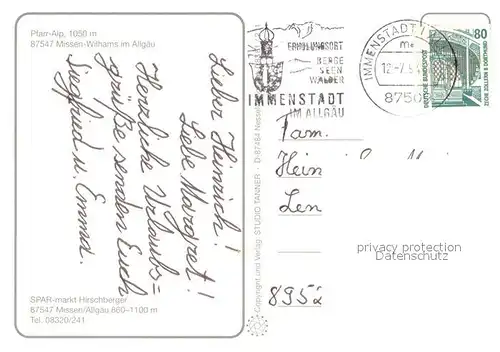 Pfarr-Alp, 1050 m
87547 Missen-Wilhams im Allgäu
Lieber Heinrich!
Liebe Margret!
Herzliche Urlaubs=
grüße senden Euch
Siegfried u. Emma.
SPAR-markt Hirschberger
87547 Missen/Allgäu 860–1100 m
Tel. 08320/241
Copyright und Verlag: STUDIO TANNER · D-87484 Nessel
ERHOLUNGSORT
BERGE
SEEN
WÄLDER
IMMENSTADT
IM ALLGÄU
IMMENSTADT
me
12.-7.
8750
80
DEUTSCHE BUNDESPOST
ZECHE ZOLLERN II DORTMUND
Fam.
Hein
Len
8952
privacy protection
Datenschutz